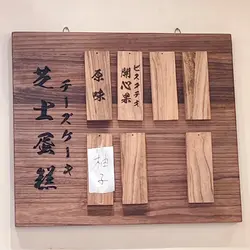 芝士蛋糕
チーズケーキ
原味
開心果
ピスタチオ
柚子